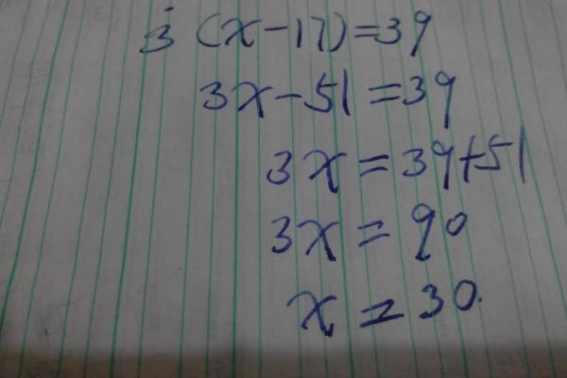 3 (x-17)=39
3x-51=39
3x=39+51
3x=90
x=30.